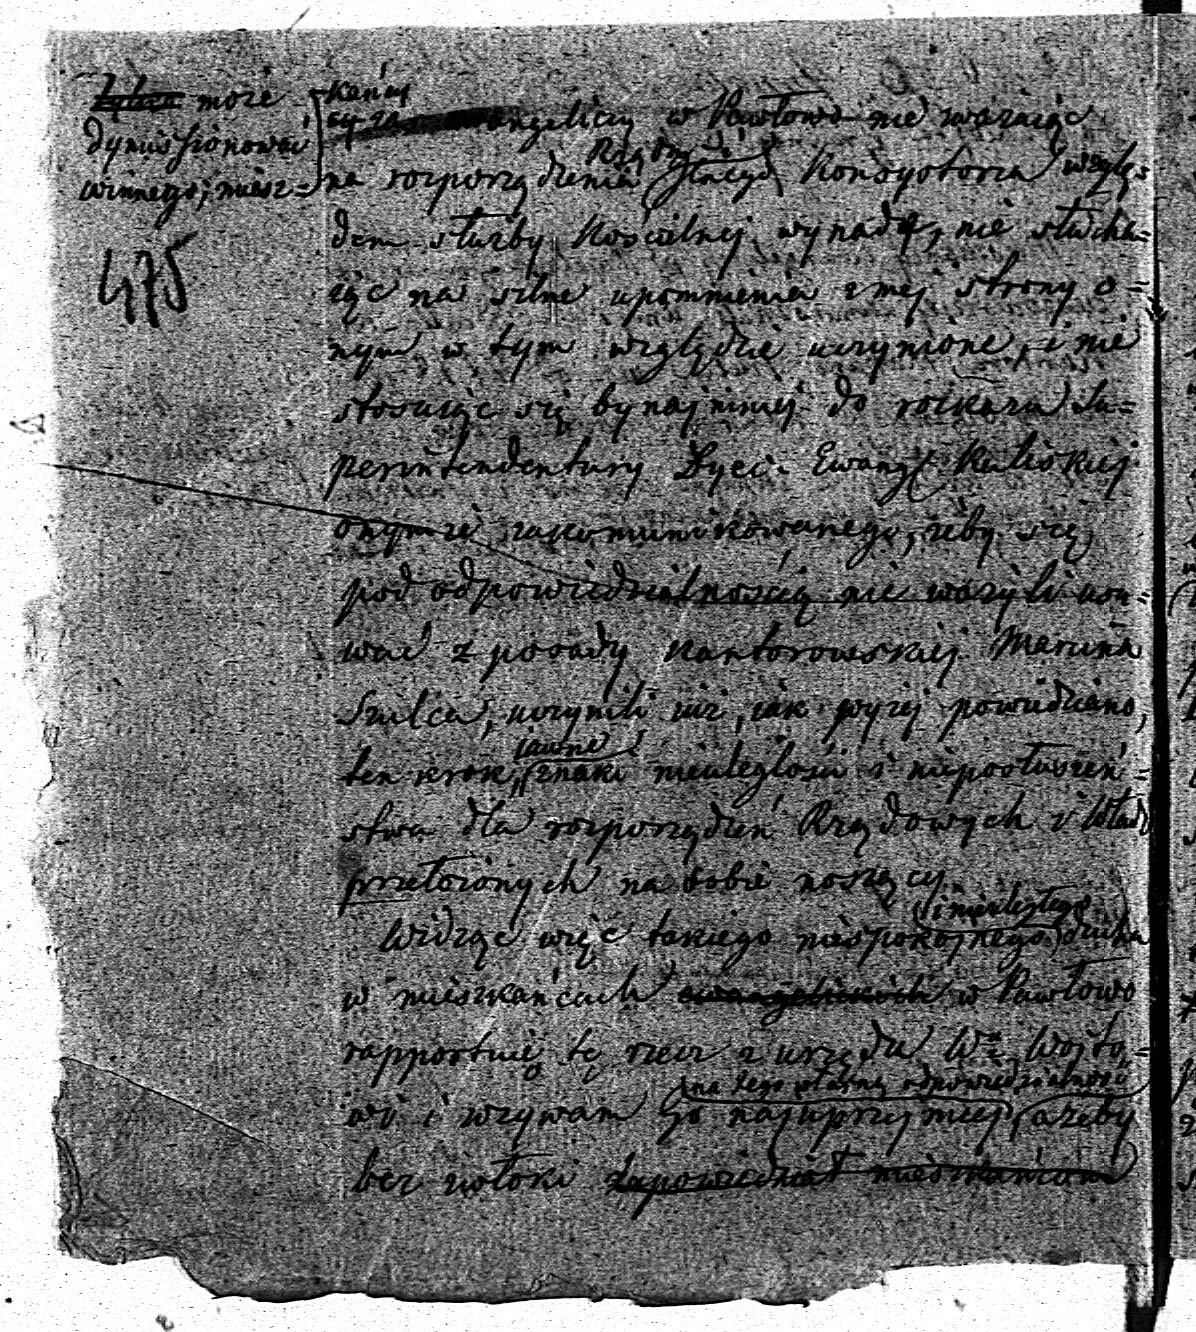 może
dymissionować
winnego; miesz=
kańcy
475
ewangeliccy w Pawłowo nie ważaiąc
na rozporządzenia Rządowe i Konsystorza wzglę=
dem służby Kościelnej wynadłe, nie słucha=
iąc na silne upomnienia z mej strony o=
nym w tym względzie uczynione, i nie
stosuiąc się bynajmniej do rozkazu Su=
perintendentury Dyec: Ewangl Kaliskiej
onymże zakomunikowanego, żeby się
pod odpowiedzialnością nie ważyli usu=
wać z posady Kantorowskiej Marcina
Szulca, uczynili iuż, iak wyżej powiedziano,
jawne
ten krok, znaki nieuległości i nieposłuszeń=
stwa dla rozporządzeń Rządowych i Władz
przełożonych na sobie noszący
i nieuległego
Widząc więc takiego niespokojnego ducha
w mieszkańcach ewangelickich w Pawłowo
rapportuię tę rzecz z urzędu Wmu Wojto=
na Jego własną odpowiedzialność
wi i wzywam Go najuprzejmiej ażeby
bez zwłoki zapowiedział mieszkańcom